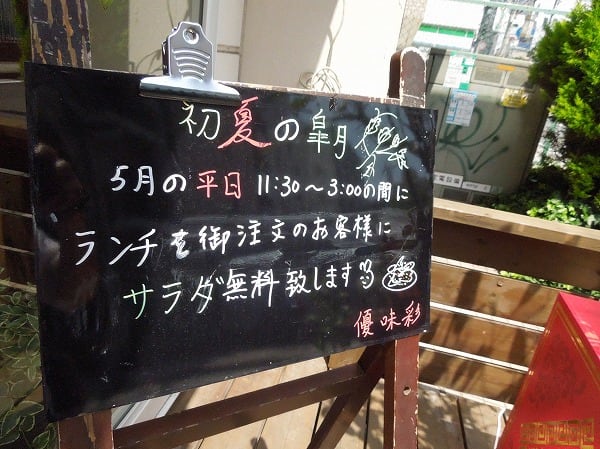 初夏の皐月
5月の平日 11:30～3:00の間に
ランチを御注文のお客様に
サラダ無料致します
優味彩